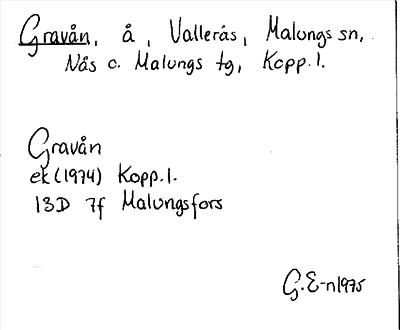 Gravån, å, Vallerås, Malungs sn,
Nås o. Malungs tg, Kopp.l.
Gravån
ek (1974) Kopp.l.
13D 7f Malungsfors
G.E-n 1975